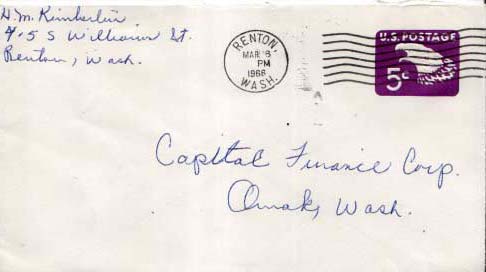 H.M. Kimberlin
415 S Williams St.
Renton, Wash.
RENTON,
MAR
PM
1966
WASH.
U.S. POSTAGE
5c
Capital Finance Corp.
Omak, Wash.